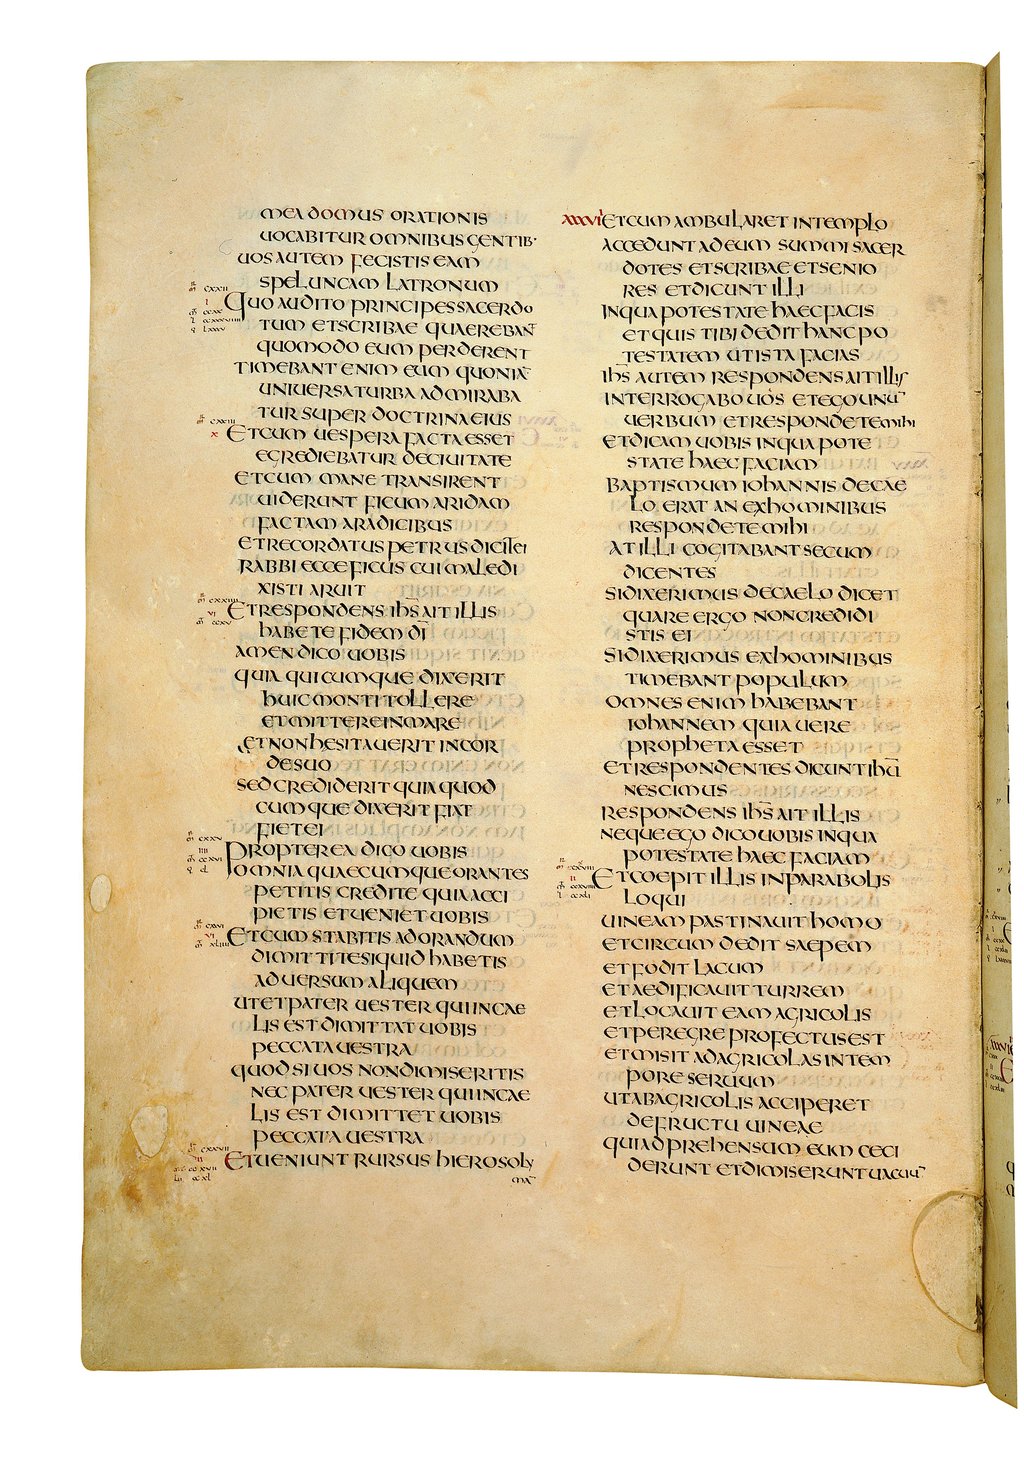 MEA DOMUS ORATIONIS
UOCABITUR OMNIBUS GENTIB·
UOS AUTEM FECISTIS EAM
SPELUNCAM LATRONUM
QUO AUDITO PRINCIPES SACERDO
TUM ET SCRIBAE QUAEREBANT
QUOMODO EUM PERDERENT
TIMEBANT ENIM EUM QUONIA̅
UNIUERSA TURBA ADMIRABA
TUR SUPER DOCTRINA EIUS
ET CUM UESPERA FACTA ESSET
EGREDIEBATUR DE CIUITATE
ET CUM MANE TRANSIRENT
UIDERUNT FICUM ARIDAM
FACTAM A RADICIBUS
ET RECORDATUS PETRUS DICIT EI
RABBI ECCE FICUS CUI MALEDI
XISTI ARUIT
ET RESPONDENS IHS̅ AIT ILLIS
HABETE FIDEM DI̅
AMEN DICO UOBIS
QUIA QUICUMQUE DIXERIT
HUIC MONTI TOLLERE
ET MITTERE IN MARE
ET NON HESITAUERIT IN COR
DE SUO
SED CREDIDERIT QUIA QUOD
CUMQUE DIXERIT FIAT
FIET EI
PROPTEREA DICO UOBIS
OMNIA QUAECUMQUE ORANTES
PETITIS CREDITE QUIA ACCI
PIETIS ET UENIET UOBIS
ET CUM STABITIS AD ORANDUM
DIMITTITE SI QUID HABETIS
ADUERSUM ALIQUEM
UT ET PATER UESTER QUI IN CAE
LIS EST DIMITTAT UOBIS
PECCATA UESTRA
QUOD SI UOS NON DIMISERITIS
NEC PATER UESTER QUI IN CAE
LIS EST DIMITTET UOBIS
PECCATA UESTRA
ET UENIUNT RURSUS HIEROSOLY
MA̅
XXXVI ET CUM AMBULARET IN TEMPLO
ACCEDUNT AD EUM SUMMI SACER
DOTES ET SCRIBAE ET SENIO
RES ET DICUNT ILLI
IN QUA POTESTATE HAEC FACIS
ET QUIS TIBI DEDIT HANC PO
TESTATEM UT ISTA FACIAS
IHS̅ AUTEM RESPONDENS AIT ILLIS
INTERROGABO UOS ET EGO UNU̅
UERBUM ET RESPONDETE MIHI
ET DICAM UOBIS IN QUA POTE
STATE HAEC FACIAM
BAPTISMUM IOHANNIS DE CAE
LO ERAT AN EX HOMINIBUS
RESPONDETE MIHI
AT ILLI COGITABANT SECUM
DICENTES
SI DIXERIMUS DE CAELO DICET
QUARE ERGO NON CREDIDI
STIS EI
SI DIXERIMUS EX HOMINIBUS
TIMEBANT POPULUM
OMNES ENIM HABEBANT
IOHANNEM QUIA UERE
PROPHETA ESSET
ET RESPONDENTES DICUNT IHU̅
NESCIMUS
RESPONDENS IHS̅ AIT ILLIS
NEQUE EGO DICO UOBIS IN QUA
POTESTATE HAEC FACIAM
ET COEPIT ILLIS IN PARABOLIS
LOQUI
UINEAM PASTINAUIT HOMO
ET CIRCUMDEDIT SAEPEM
ET FODIT LACUM
ET AEDIFICAUIT TURREM
ET LOCAUIT EAM AGRICOLIS
ET PEREGRE PROFECTUS EST
ET MISIT AD AGRICOLAS IN TEM
PORE SERUUM
UT AB AGRICOLIS ACCIPERET
DE FRUCTU UINEAE
QUI ADPREHENSUM EUM CECI
DERUNT ET DIMISERUNT UACUU̅